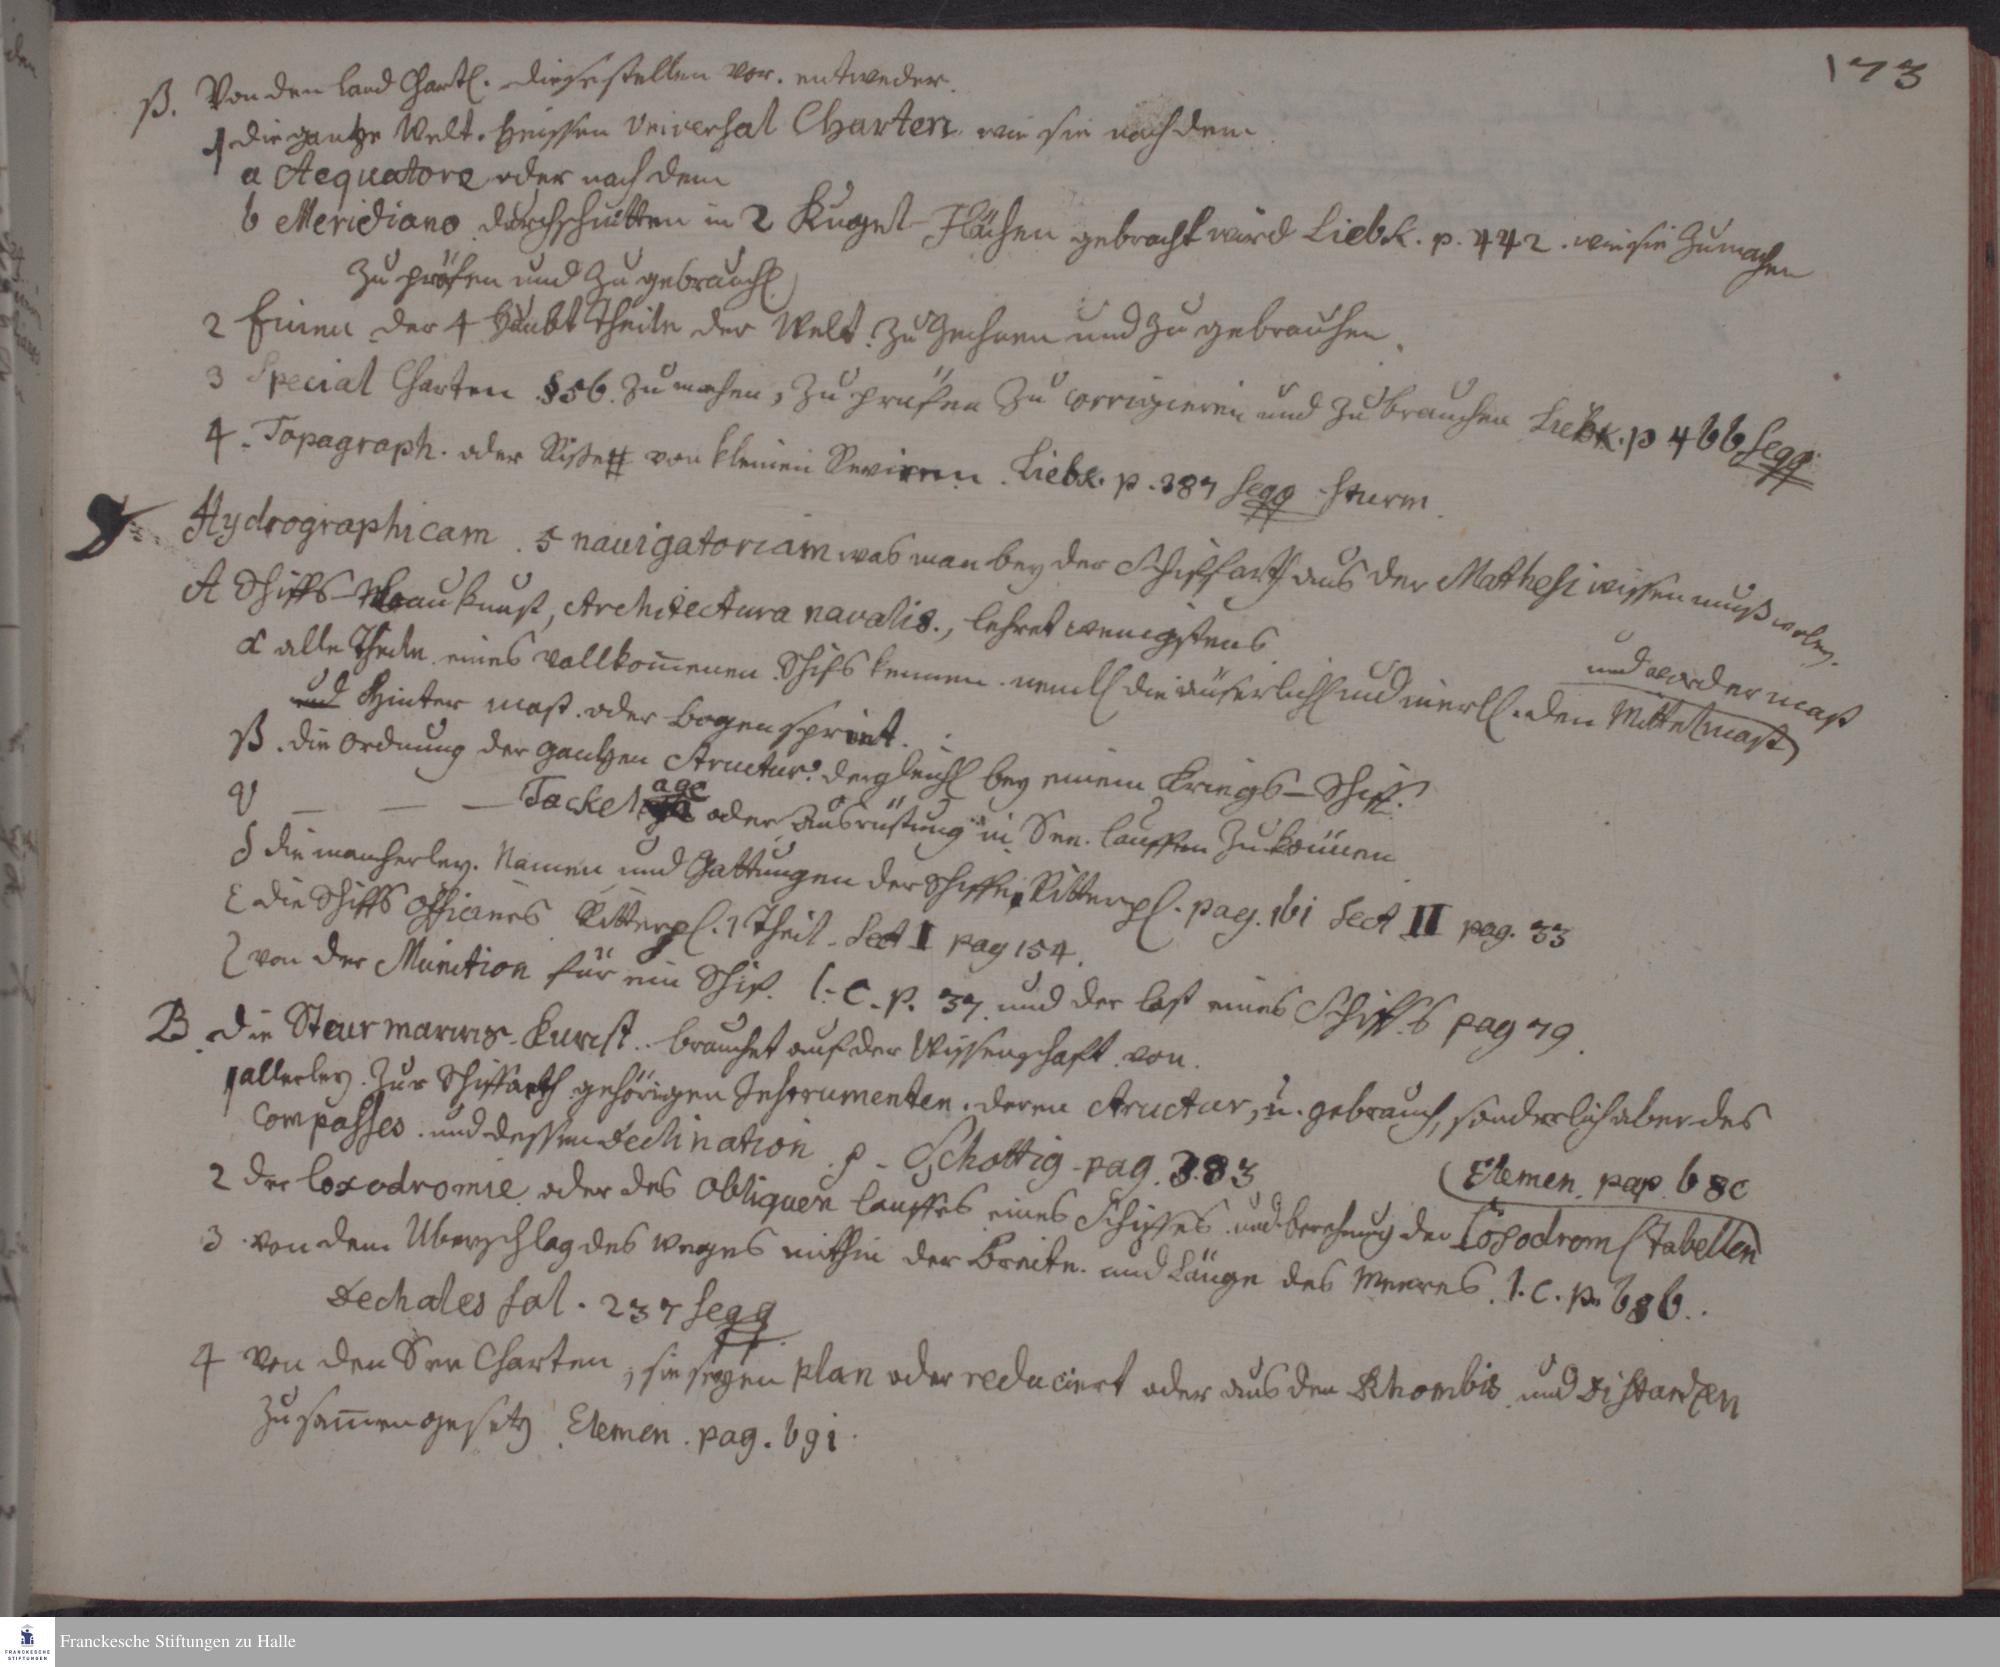 173
β. Von den Land Chart. diese stellen vor. entweder.
1 die gantze Welt. heissen Universal Charten. wie sie nach dem
a Aequatore oder nach dem
b Meridiano durchschnitten in 2 Kugel-Flächen gebracht wird Liebk. p. 442. wie sie zu machen
zu prüfen und zu gebrauch.
2 Einen der 4 Haubt Theile der Welt. zu Zeichnen und zu gebrauchen.
3 Special Charten §56. zu machen, zu prüfen zu corrigieren und zu brauchen Liebk. p 466 seqq
4. Topagraph. oder Risse von kleinen Reviren. Liebk. p. 387 seqq Sturm.
Hydrographicam. 5 navigatoriam was man bey der Schiffart aus der Mathesi wissen muß
A Schiffs-Baukunst, Architectura navalis., lehret wenigstens
und vorder mast
α alle Theile eines vollkom̄enen Schifs kennen. neml. die äuserlich. und innerl. den Mittelmast
und Hinter mast. oder Bogensprint.
β. die Ordnung der gantzen Structur. dergleich. bey einem Kriegs-Schiff.
γ — — — Tackelage oder Ausrüstung in See. lauffen zu können
δ die mancherley. Namen und Gattungen der Schiffe, Ritterpl. pag. 161 Sect II pag. 33
ε die Schiffs Officiers Ritterpl. 1 Theil. Sect I pag 154.
ζ von der Munition für ein Schif. l. c. p. 37. und der last eines Schiffs pag 79.
B. die Steurmanns-Kunst.. brauchet auf der Wissenschaft von.
1 allerley. Zur Schiffarth gehörigen Instrumenten. deren Structur, u. gebrauch, sonderlich aber des
Compasses. und dessen Declination. p. Schottig. pag. 383
Elemen. pag. 680
2 der loxodromie oder des Obliquen lauffes eines Schiffes und berechnung der Loxodrom. Tabellen
3. von dem Uberschlag des weges mithin der Breite. und Länge des Meeres. l. c. p. 686.
Dechales fol. 237 seqq
4 Von den See Charten, sie seyen plan oder reduciert oder aus den Rhombis und Distantzen
zusam̄en gesetz Elemen. pag. 691
Franckesche Stiftungen zu Halle
FRANCKESCHE
STIFTUNGEN